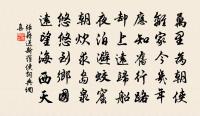 萬里為朝使
離家今幾年
應知舊行路
却上遠歸船
夜泊避蛟窟
朝炊求島泉
悠悠到鄉國
遠望海西天
張籍送新羅使